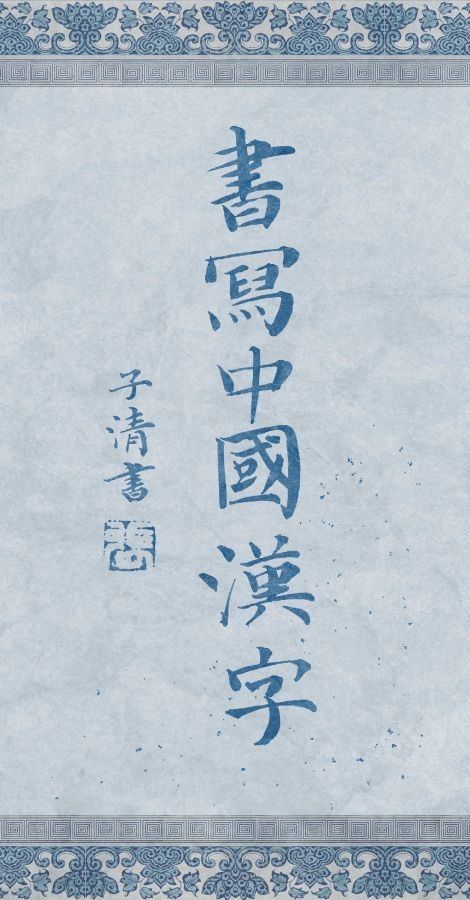 書寫中國漢字
子清書